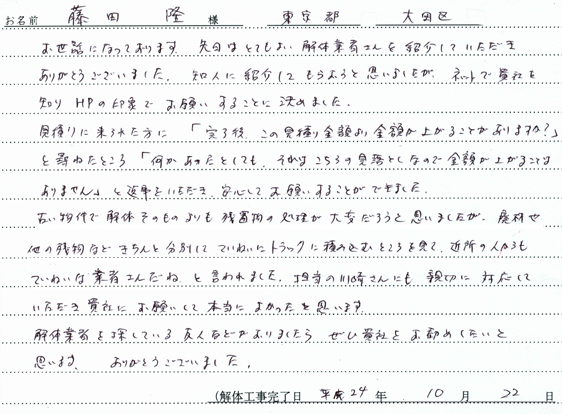 お名前 藤田 隆 様 東京都 大田区
お世話になっております。先日はとてもよい解体業者さんを紹介していただき
ありがとうございました。知人に紹介してもらおうと思いましたが、ネットで貴社を
知り HPの印象でお願いすることに決めました。
見積りに来られた方に「完了後、この見積り金額より金額が上がることがありますか?」
と尋ねたところ「何があったとしても、それはこちらの見落としなので金額が上がることは
ありません」と返事をいただき、安心してお願いすることができました。
古い物件で解体そのものよりも残置物の処理が大変だろうと思いましたが、廃材や
他の残物などきちんと分別してていねいにトラックに積み込むところを見て、近所の人からも
ていねいな業者さんだね と言われました。担当の川崎さんにも親切に対応して
いただき貴社にお願いして本当によかったと思います。
解体業者を探している友人などがおりましたら ぜひ貴社をお勧めしたいと
思います。 ありがとうございました。
(解体工事完了日 平成24年 10月 22日